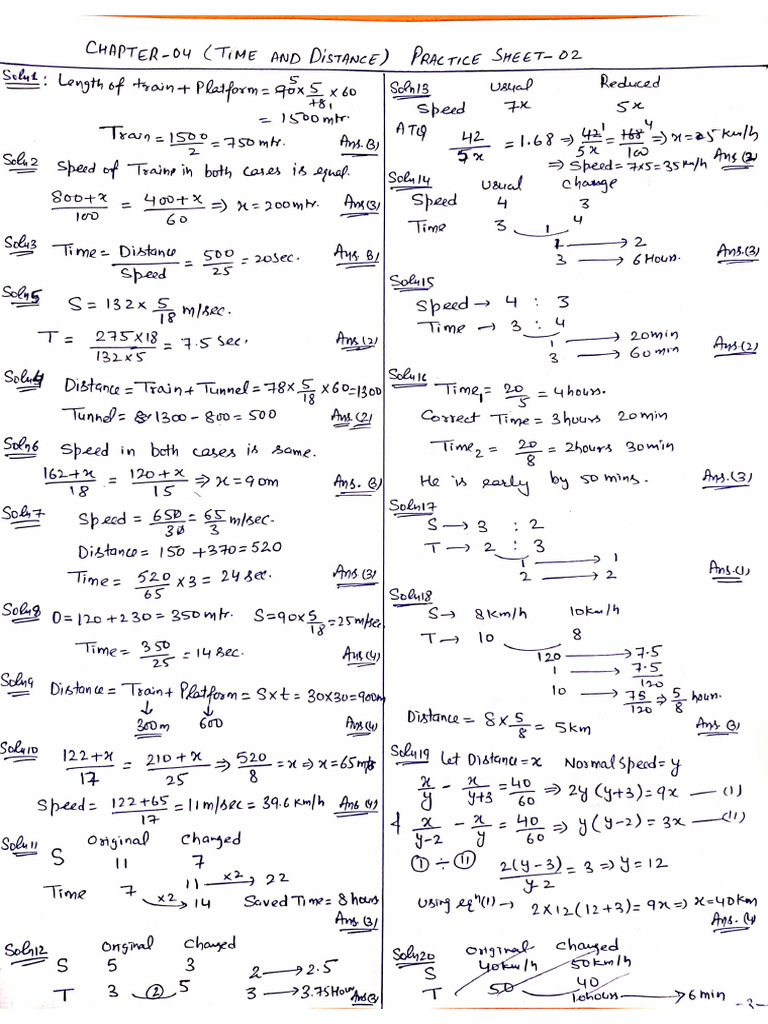 CHAPTER-04 (TIME AND DISTANCE) PRACTICE SHEET-02
Soln1: Length of train + Platform = 90 × 5/18 × 60
5
= 1500 mtr.
Train = 1500/2 = 750 mtr. Ans.(3)
Soln2 Speed of Trains in both cases is equal.
800+x/100 = 400+x/60 ⇒ x = 200 mtr. Ans(3)
Soln3 Time = Distance/Speed = 500/25 = 20 sec. Ans.(3)
Soln5 S = 132 × 5/18 m/sec.
T = 275×18/132×5 = 7.5 sec. Ans(2)
Soln4 Distance = Train + Tunnel = 78 × 5/18 × 60 = 1300
Tunnel = 1300 - 800 = 500 Ans(2)
Soln6 Speed in both cases is same.
162+x/18 = 120+x/15 ⇒ x = 90m Ans.(3)
Soln7 Speed = 650/30 = 65/3 m/sec.
Distance = 150 + 370 = 520
Time = 520/65 × 3 = 24 sec. Ans(3)
Soln8 D = 120 + 230 = 350 mtr. S = 90 × 5/18 = 25 m/sec.
Time = 350/25 = 14 sec. Ans(4)
Soln9 Distance = Train + Platform = S×t = 30×30 = 900m
↓ ↓
300m 600 Ans(4)
Soln10 122+x/17 = 210+x/25 ⇒ 520/8 = x ⇒ x = 65 m
Speed = 122+65/17 = 11 m/sec = 39.6 km/h Ans(4)
Soln11 Original Changed
S 11 7
11 ×2→ 22
Time 7 ×2→ 14 Saved Time = 8 hours
Ans(3)
Soln12 Original Changed
S 5 3 2 → 2.5
T 3 ② 5 3 → 3.75 Hour Ans(3)
Soln13 Usual Reduced
Speed 7x 5x
ATQ 42/5x = 1.68 ⇒ 42/5x = 168/100 ⇒ x = 5 km/h
1 4
⇒ Speed = 7×5 = 35 km/h Ans(2)
Soln14 Usual Change
Speed 4 3
Time 3 1 4
1 → 2
3 → 6 Hours. Ans.(3)
Soln15
Speed → 4 : 3
Time → 3 : 4
1 → 20 min
3 → 60 min Ans.(2)
Soln16 Time1 = 20/5 = 4 hours.
Correct Time = 3 hours 20 min
Time2 = 20/8 = 2 hours 30 min
He is early by 50 mins. Ans.(3)
Soln17
S → 3 : 2
T → 2 : 3
1 → 1
2 → 2 Ans.(1)
Soln18
S → 8 km/h 10 km/h
T → 10 8
120 → 7.5
1 → 7.5/120
10 → 75/120 ⇒ 5/8 hour.
Distance = 8 × 5/8 = 5 km Ans(3)
Soln19 Let Distance = x Normal Speed = y
x/y - x/y+3 = 40/60 ⇒ 2y(y+3) = 9x — (I)
& x/y-2 - x/y = 40/60 ⇒ y(y-2) = 3x — (II)
① ÷ ⑪ 2(y-3)/y-2 = 3 ⇒ y = 12
Using eqn(1) → 2×12(12+3) = 9x ⇒ x = 40 km
Ans.(4)
Soln20 Original Changed
S 40 km/h 50 km/h
T 50 40
10 hours → 6 min
-3-